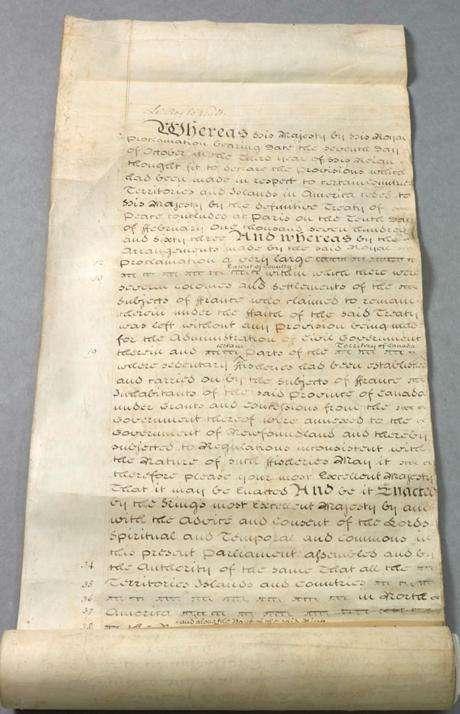 Le Roy le veult
Whereas His Majesty by His Royal
Proclamation bearing Date the Seventh Day
of October in the Third Year of His Reign
thought fit to declare the Provisions which
had been made in respect to certain Countries
Territories and Islands in America ceded to
His Majesty by the definitive Treaty of
Peace concluded at Paris on the Tenth Day
of February One thousand seven hundred
and sixty three And whereas by the
Arrangements made by the said Royal
Proclamation a very large
Extent of Country
within which there were
several Colonies and Settlements of the
Subjects of France who claimed to remain
therein under the Faith of the said Treaty
was left without any Provision being made
for the Administration of Civil Government
certain Territory of Canada
19 therein and Parts of the
where sedentary Fisheries had been established
and carried on by the Subjects of France
Inhabitants of the said Province of Canada
under Grants and Concessions from the
Government thereof were annexed to the
Government of Newfoundland and thereby
subjected to Regulations inconsistent with
the Nature of such Fisheries May it
therefore please Your most Excellent Majesty
That it may be Enacted And be it Enacted
by the Kings most Excellent Majesty by and
with the Advice and Consent of the Lords
Spiritual and Temporal and Commons in
this present Parliament assembled and by
34 the Authority of the same That all the
35 Territories Islands and Countries
36 in North
37 America